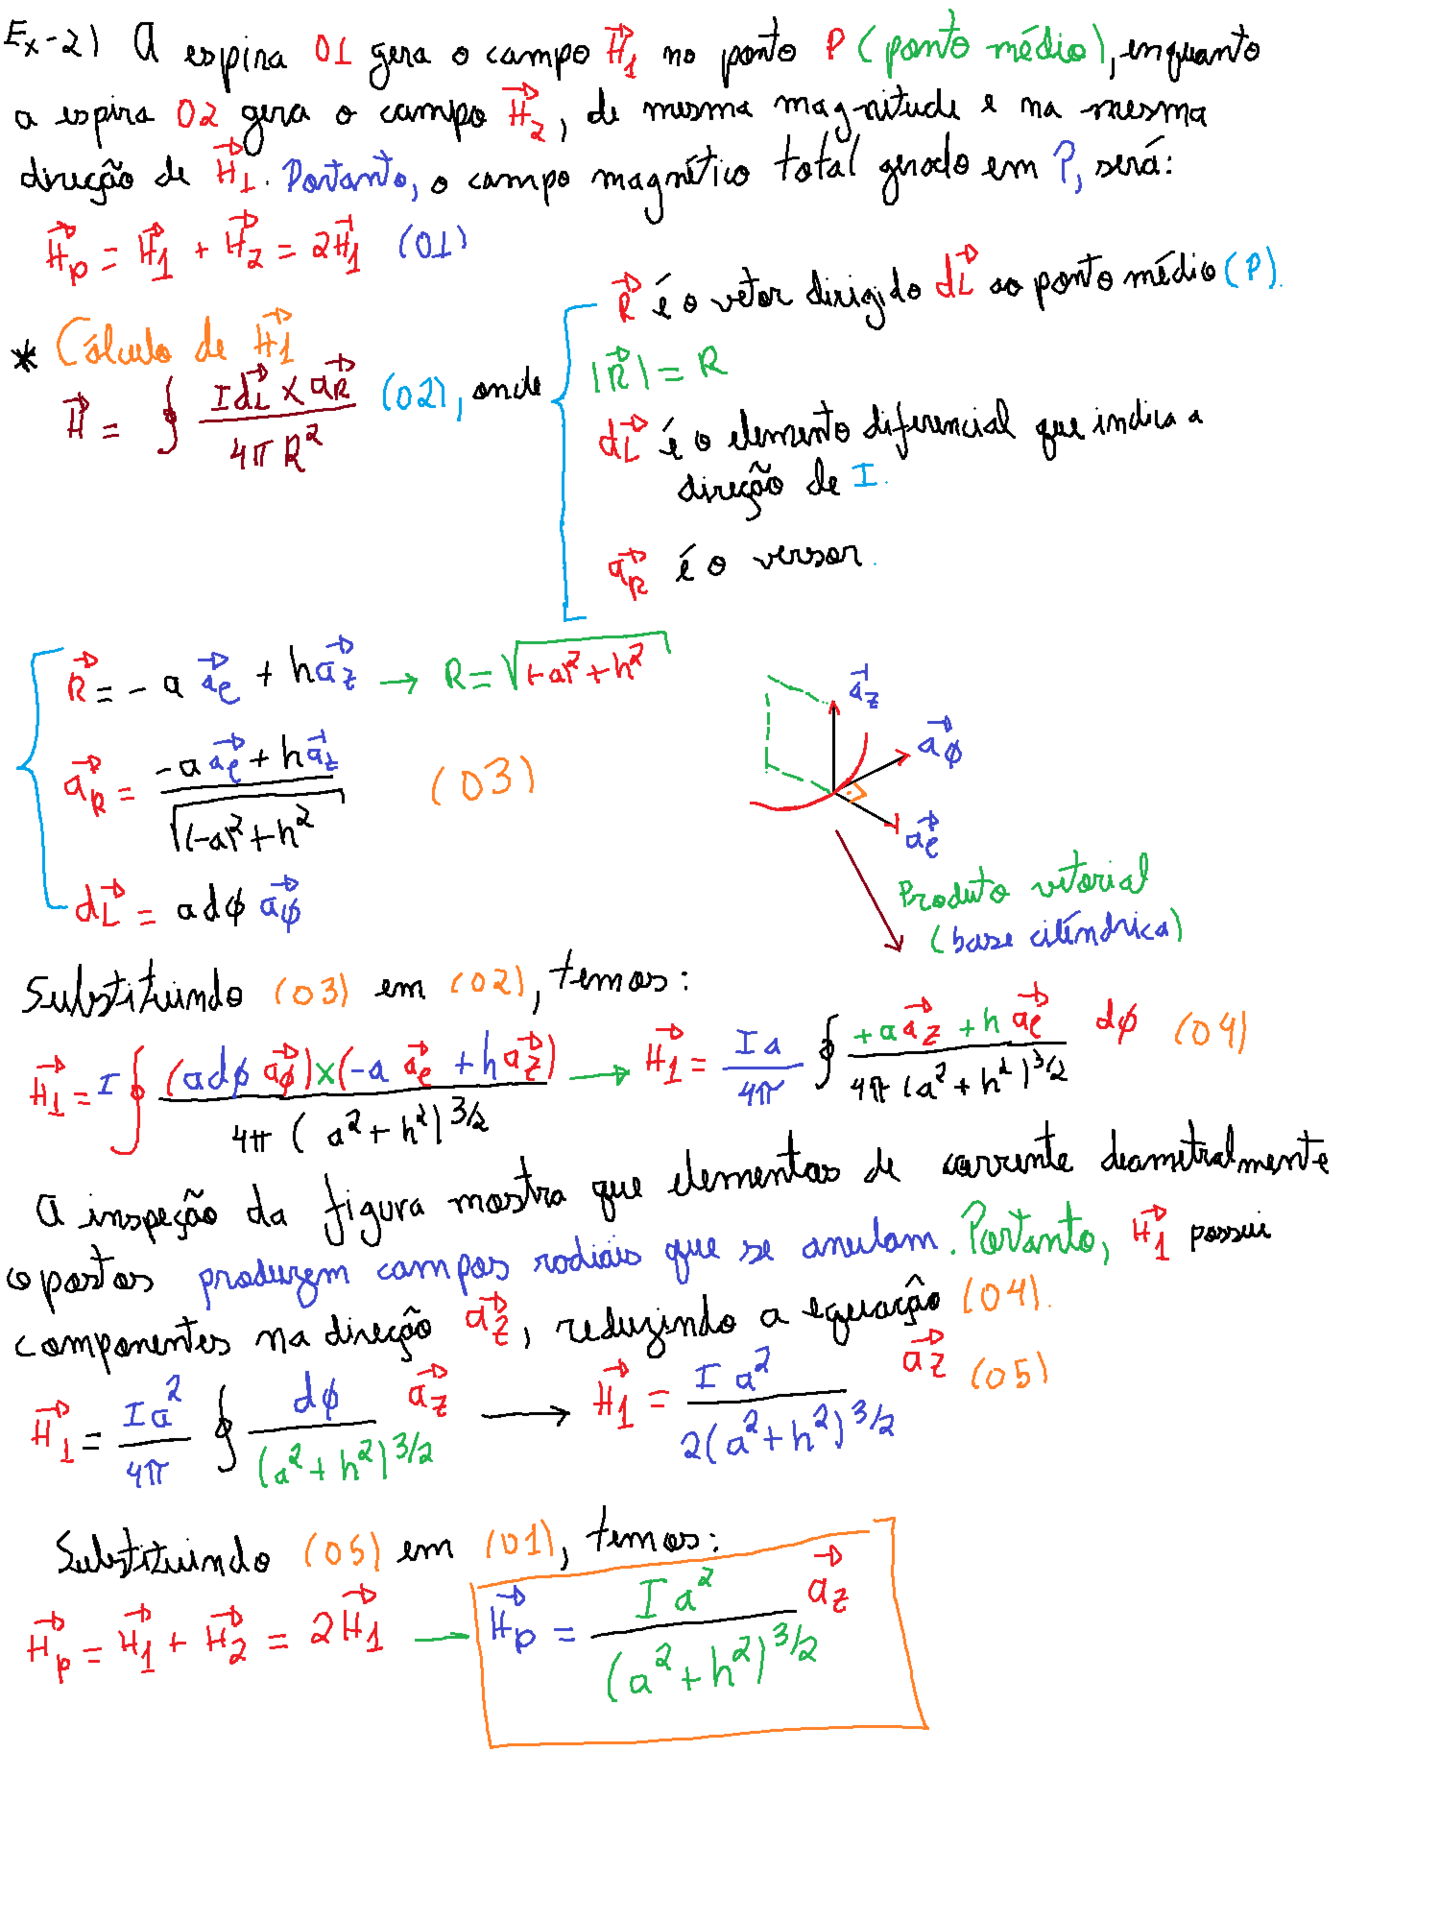 Ex-2) A espira 01 gera o campo H⃗₁ no ponto P (ponto médio), enquanto
a espira 02 gera o campo H⃗₂, de mesma magnitude e na mesma
direção de H⃗₁. Portanto, o campo magnético total gerado em P, será:
H⃗p = H⃗₁ + H⃗₂ = 2H⃗₁ (01)
* Cálculo de H⃗₁
H⃗ = ∮ IdL⃗ × a⃗R / 4πR² (02), onde
R⃗ é o vetor dirigido dL⃗ ao ponto médio (P).
|R⃗| = R
dL⃗ é o elemento diferencial que indica a
direção de I.
a⃗R é o versor.
R⃗ = -a a⃗ρ + h a⃗z → R = √((-a)² + h²)
a⃗R = (-a a⃗ρ + h a⃗z) / √((-a)² + h²) (03)
dL⃗ = a dϕ a⃗ϕ
a⃗z
a⃗ϕ
a⃗ρ
Produto vetorial
(base cilíndrica)
Substituindo (03) em (02), temos:
H⃗₁ = I ∮ (a dϕ a⃗ϕ) × (-a a⃗ρ + h a⃗z) / 4π (a² + h²)^3/2 → H⃗₁ = Ia/4π ∮ (+a a⃗z + h a⃗ρ) / 4π (a² + h²)^3/2 dϕ (04)
A inspeção da figura mostra que elementos de corrente diametralmente
opostos produzem campos radiais que se anulam. Portanto, H⃗₁ possui
componentes na direção a⃗z, reduzindo a equação (04).
H⃗₁ = Ia²/4π ∮ dϕ / (a² + h²)^3/2 a⃗z → H⃗₁ = I a² / 2(a² + h²)^3/2 a⃗z (05)
Substituindo (05) em (01), temos:
H⃗p = H⃗₁ + H⃗₂ = 2H⃗₁ — H⃗p = I a² / (a² + h²)^3/2 a⃗z